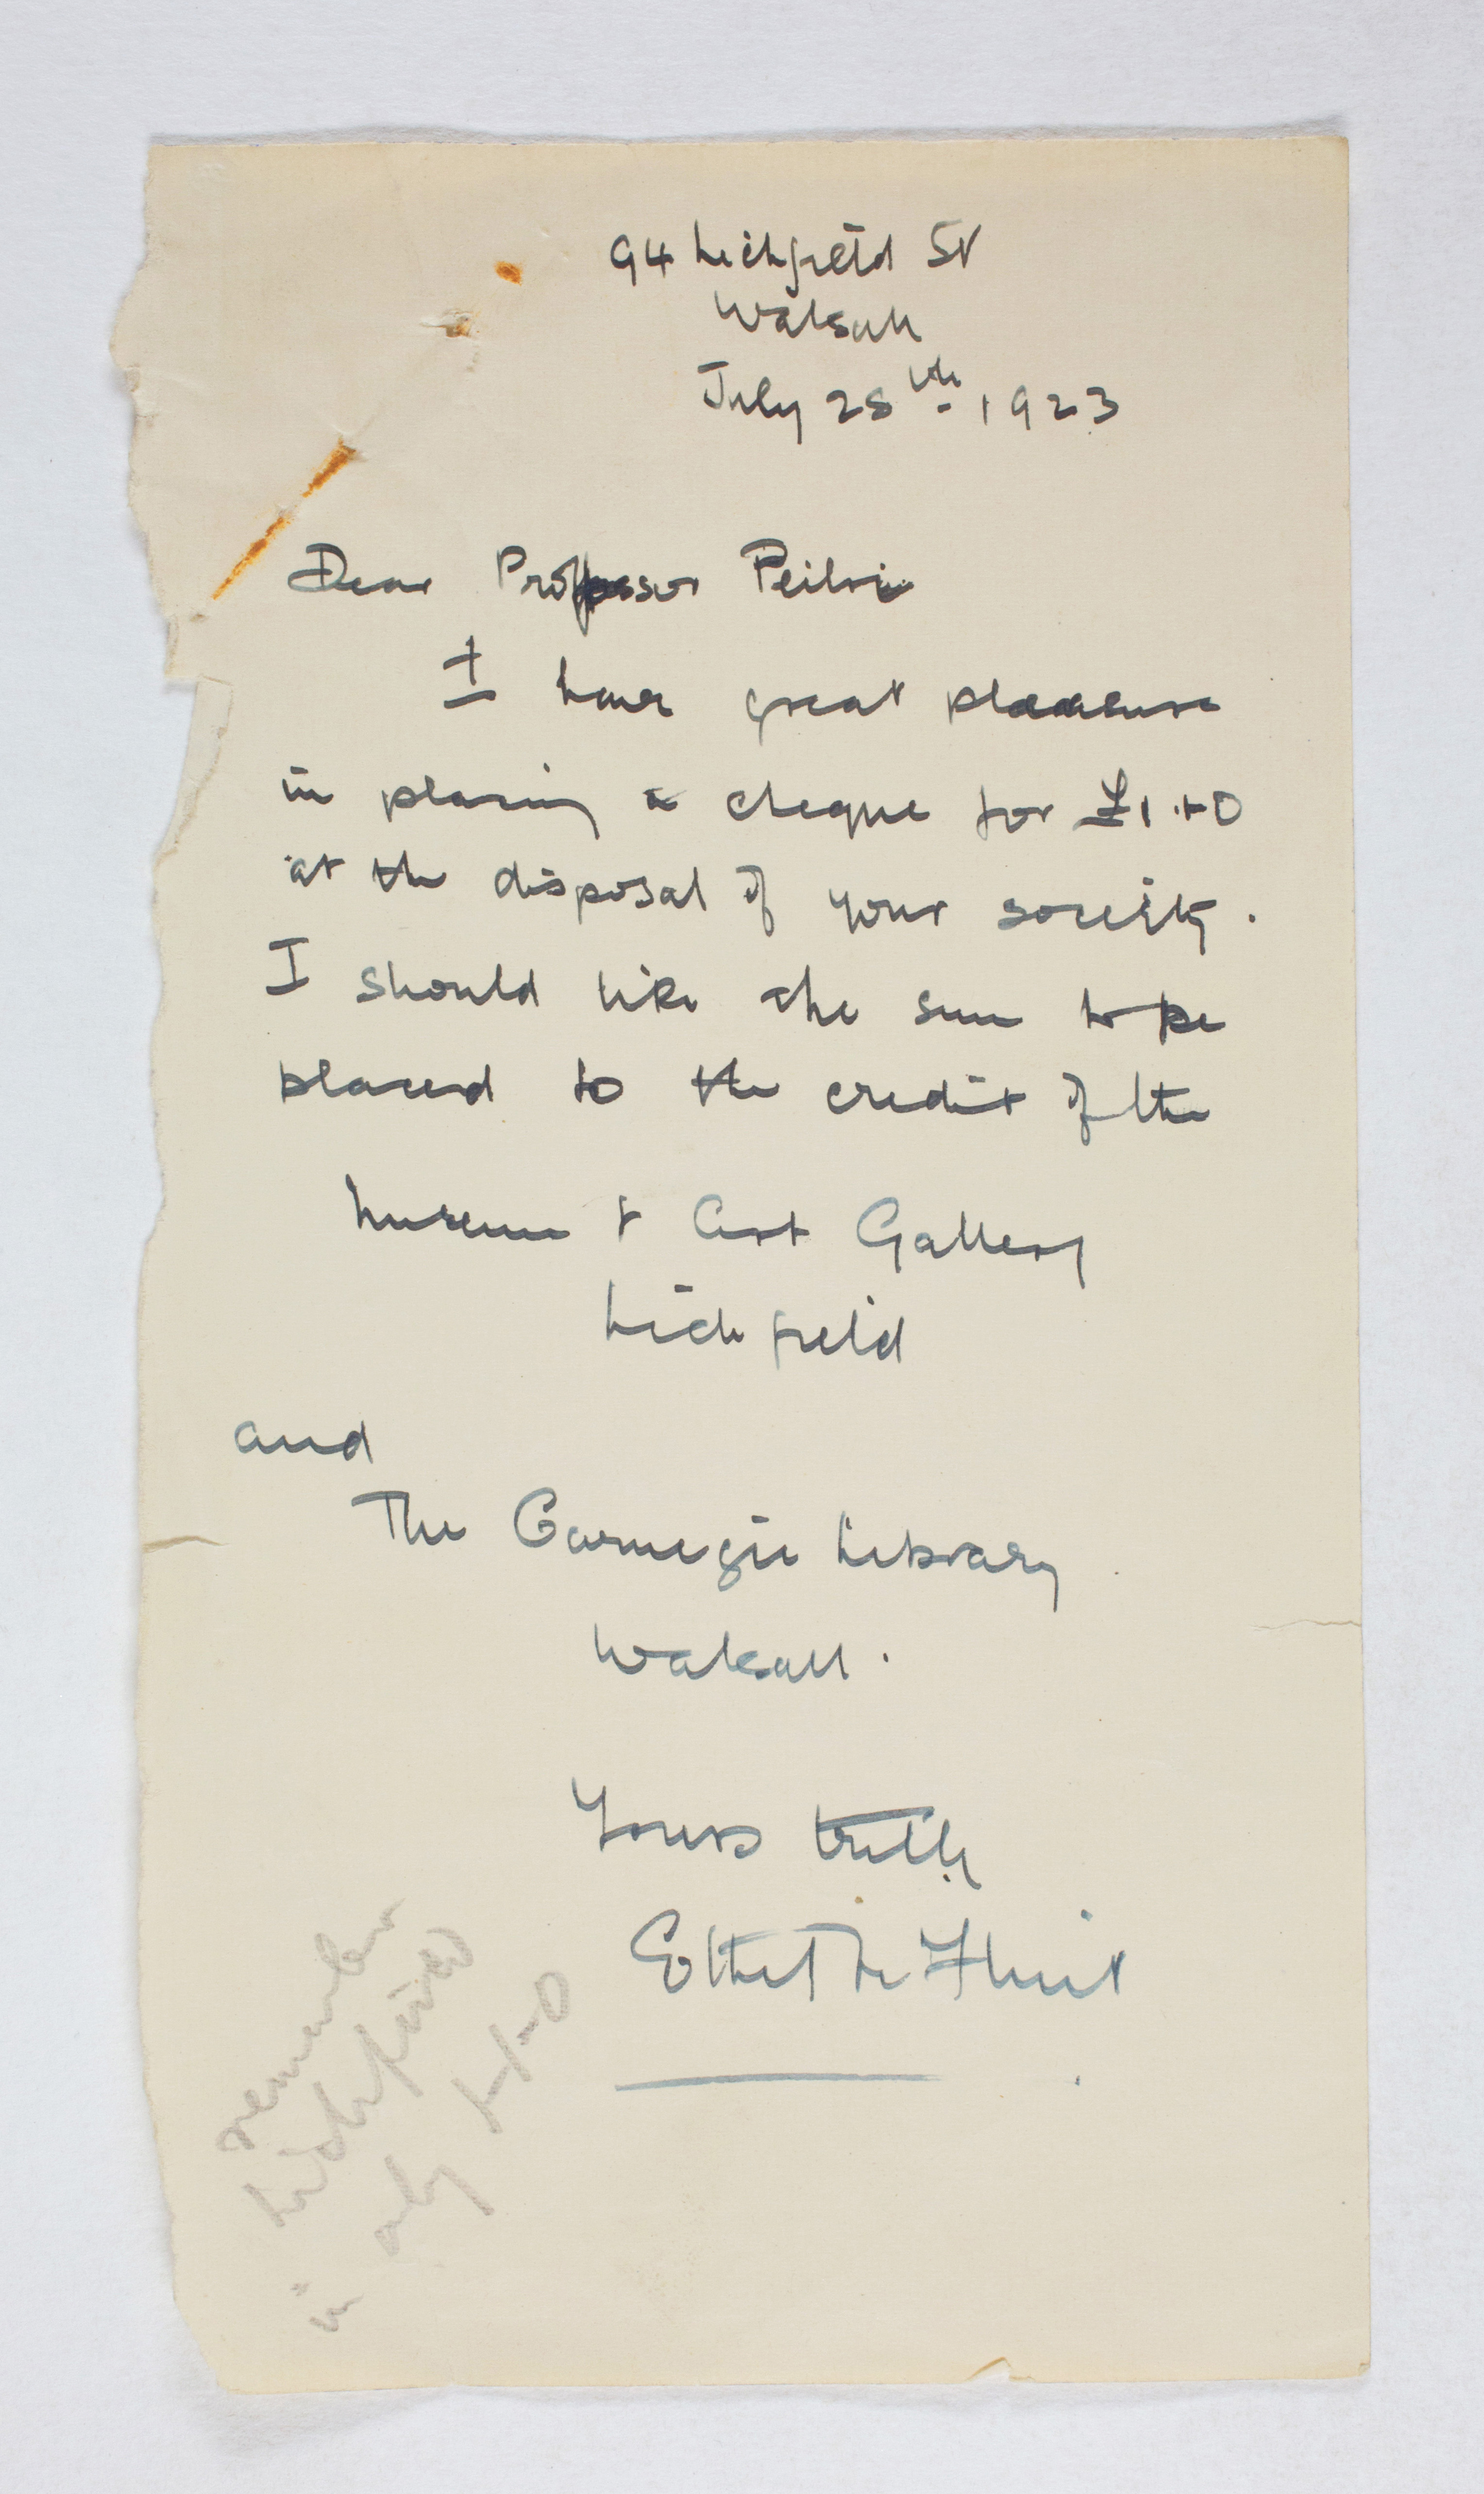 94 Lichfield St
Walsall
July 28th 1923
Dear Professor Petrie
I have great pleasure
in placing a cheque for £1.1.0
at the disposal of your society.
I should like the sum to be
placed to the credit of the
Museum & Art Gallery
Lichfield
and
The Carnegie Library
Walsall.
Yours truly
Ethel M Flint
remember
Lichfield
in only 1-1-0